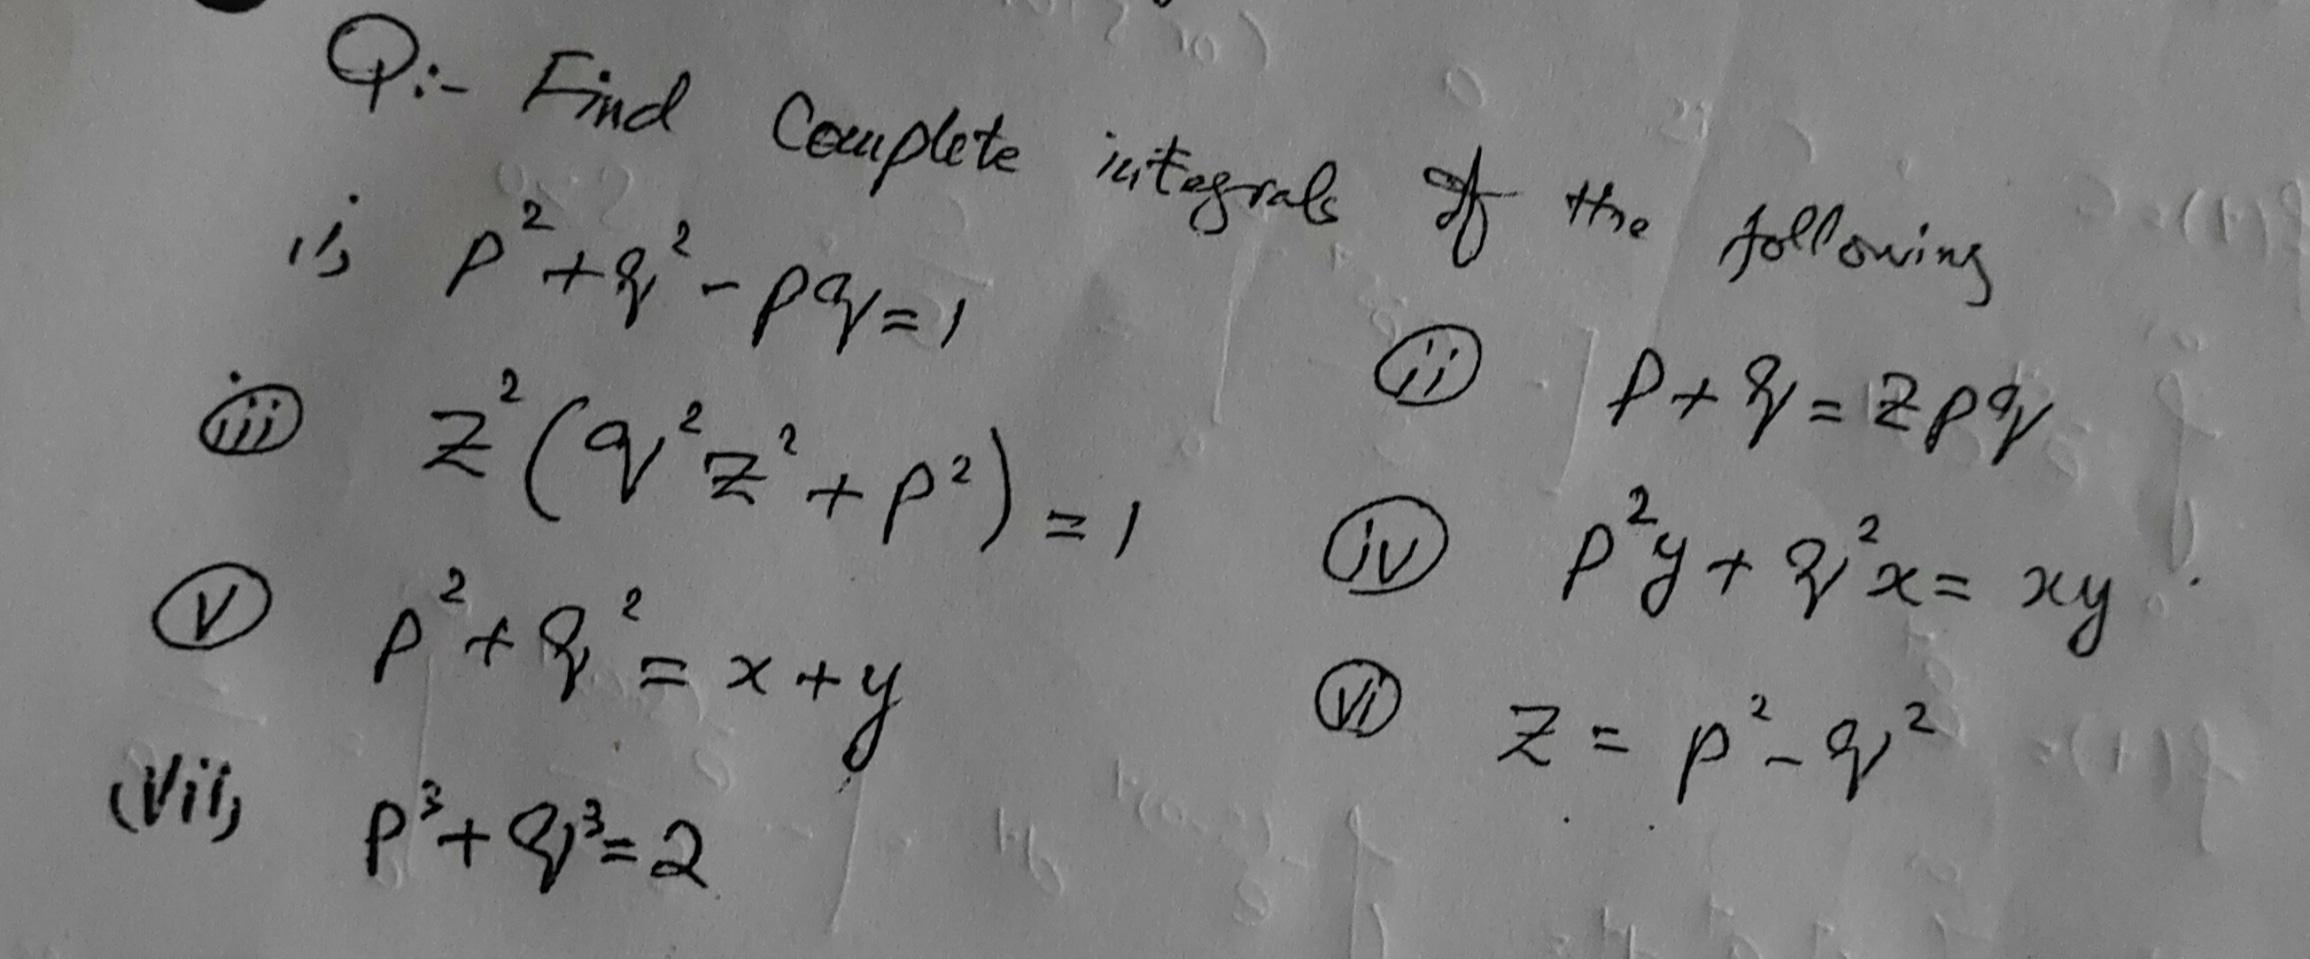 Q:- Find Complete integrals of the following
i, p²+q²-pq=1
ii p+q=zpq
iii z²(q²z²+p²)=1
iv p²y+q²x=xy
v p²+q²=x+y
vi z=p²-q²
(vii, p³+q³=2